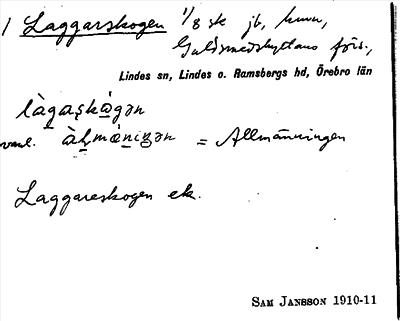 1 Laggarskogen 1/8 sk jb, kronn,
Guldsmedshyttans förs.,
Lindes sn, Lindes o. Ramsbergs hd, Örebro län
làgaṣkàgən
vanl. àḷmæ̀niŋən = Allmänningen
Laggareskogen ek.
SAM JANSSON 1910-11